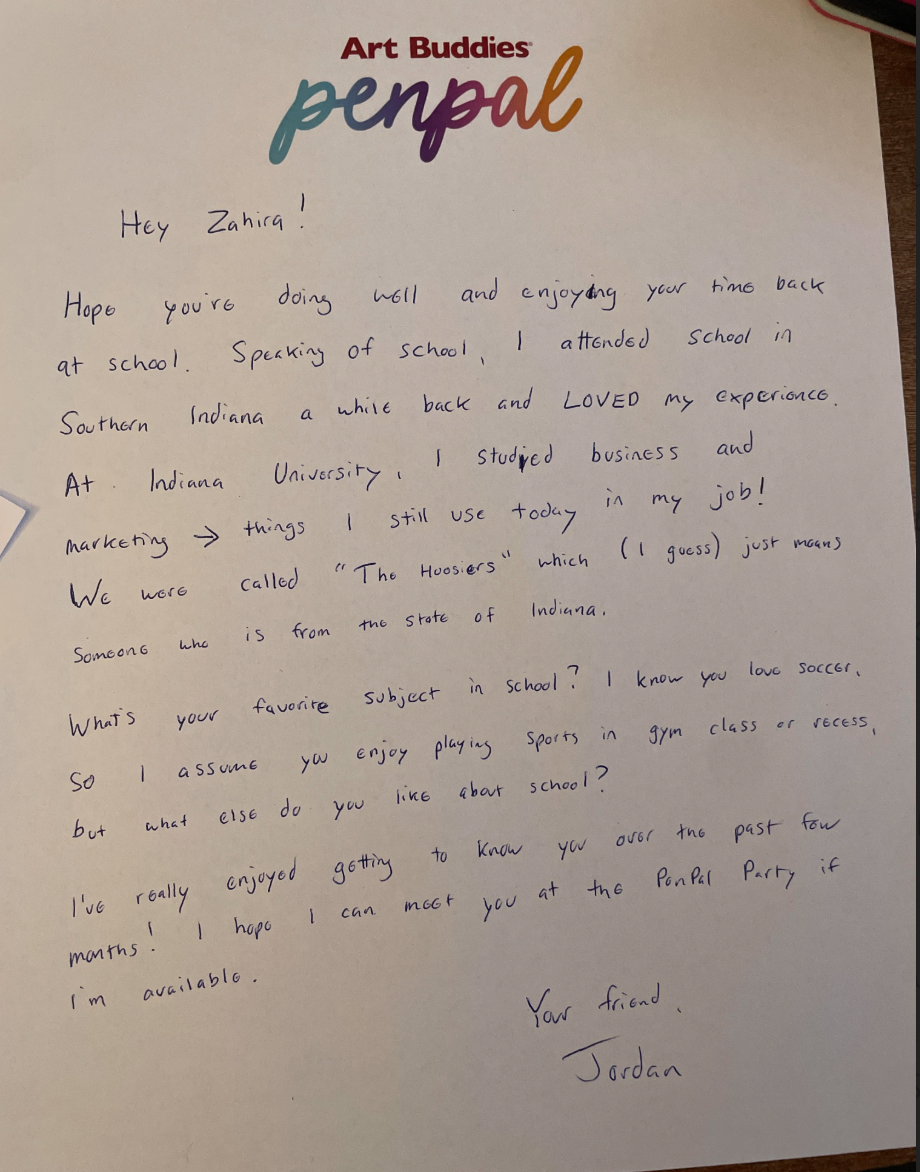 Art Buddies
penpal
Hey Zahira!
Hope you're doing well and enjoying your time back
at school. Speaking of school, I attended school in
Southern Indiana a while back and LOVED my experience.
At Indiana University, I studied business and
marketing → things I still use today in my job!
We were called "The Hoosiers" which (I guess) just means
Someone who is from the state of Indiana.
What's your favorite subject in school? I know you love soccer,
So I assume you enjoy playing sports in gym class or recess,
but what else do you like about school?
I've really enjoyed getting to know you over the past few
months! I hope I can meet you at the PenPal Party if
I'm available.
Your friend,
Jordan